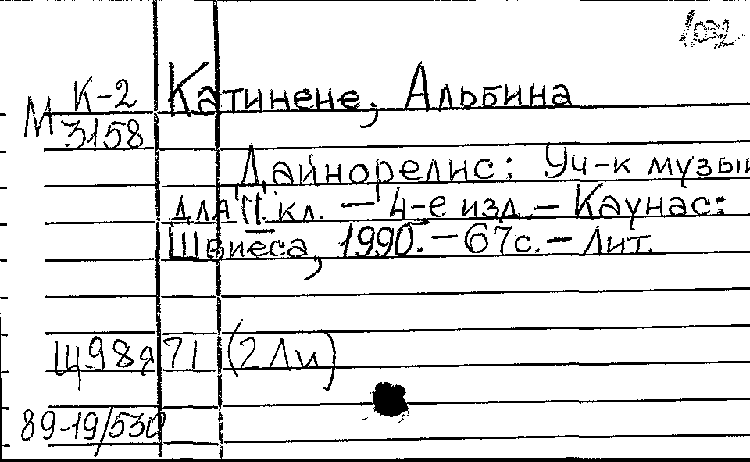 К-2 Катинене, Альбина
М 3158
Дайнорелис: Уч-к музы
для II кл. — 4-е изд. — Каунас:
Швиеса, 1990. — 67 с. — Лит.
Щ98я71 (2Ли)
89-19/530